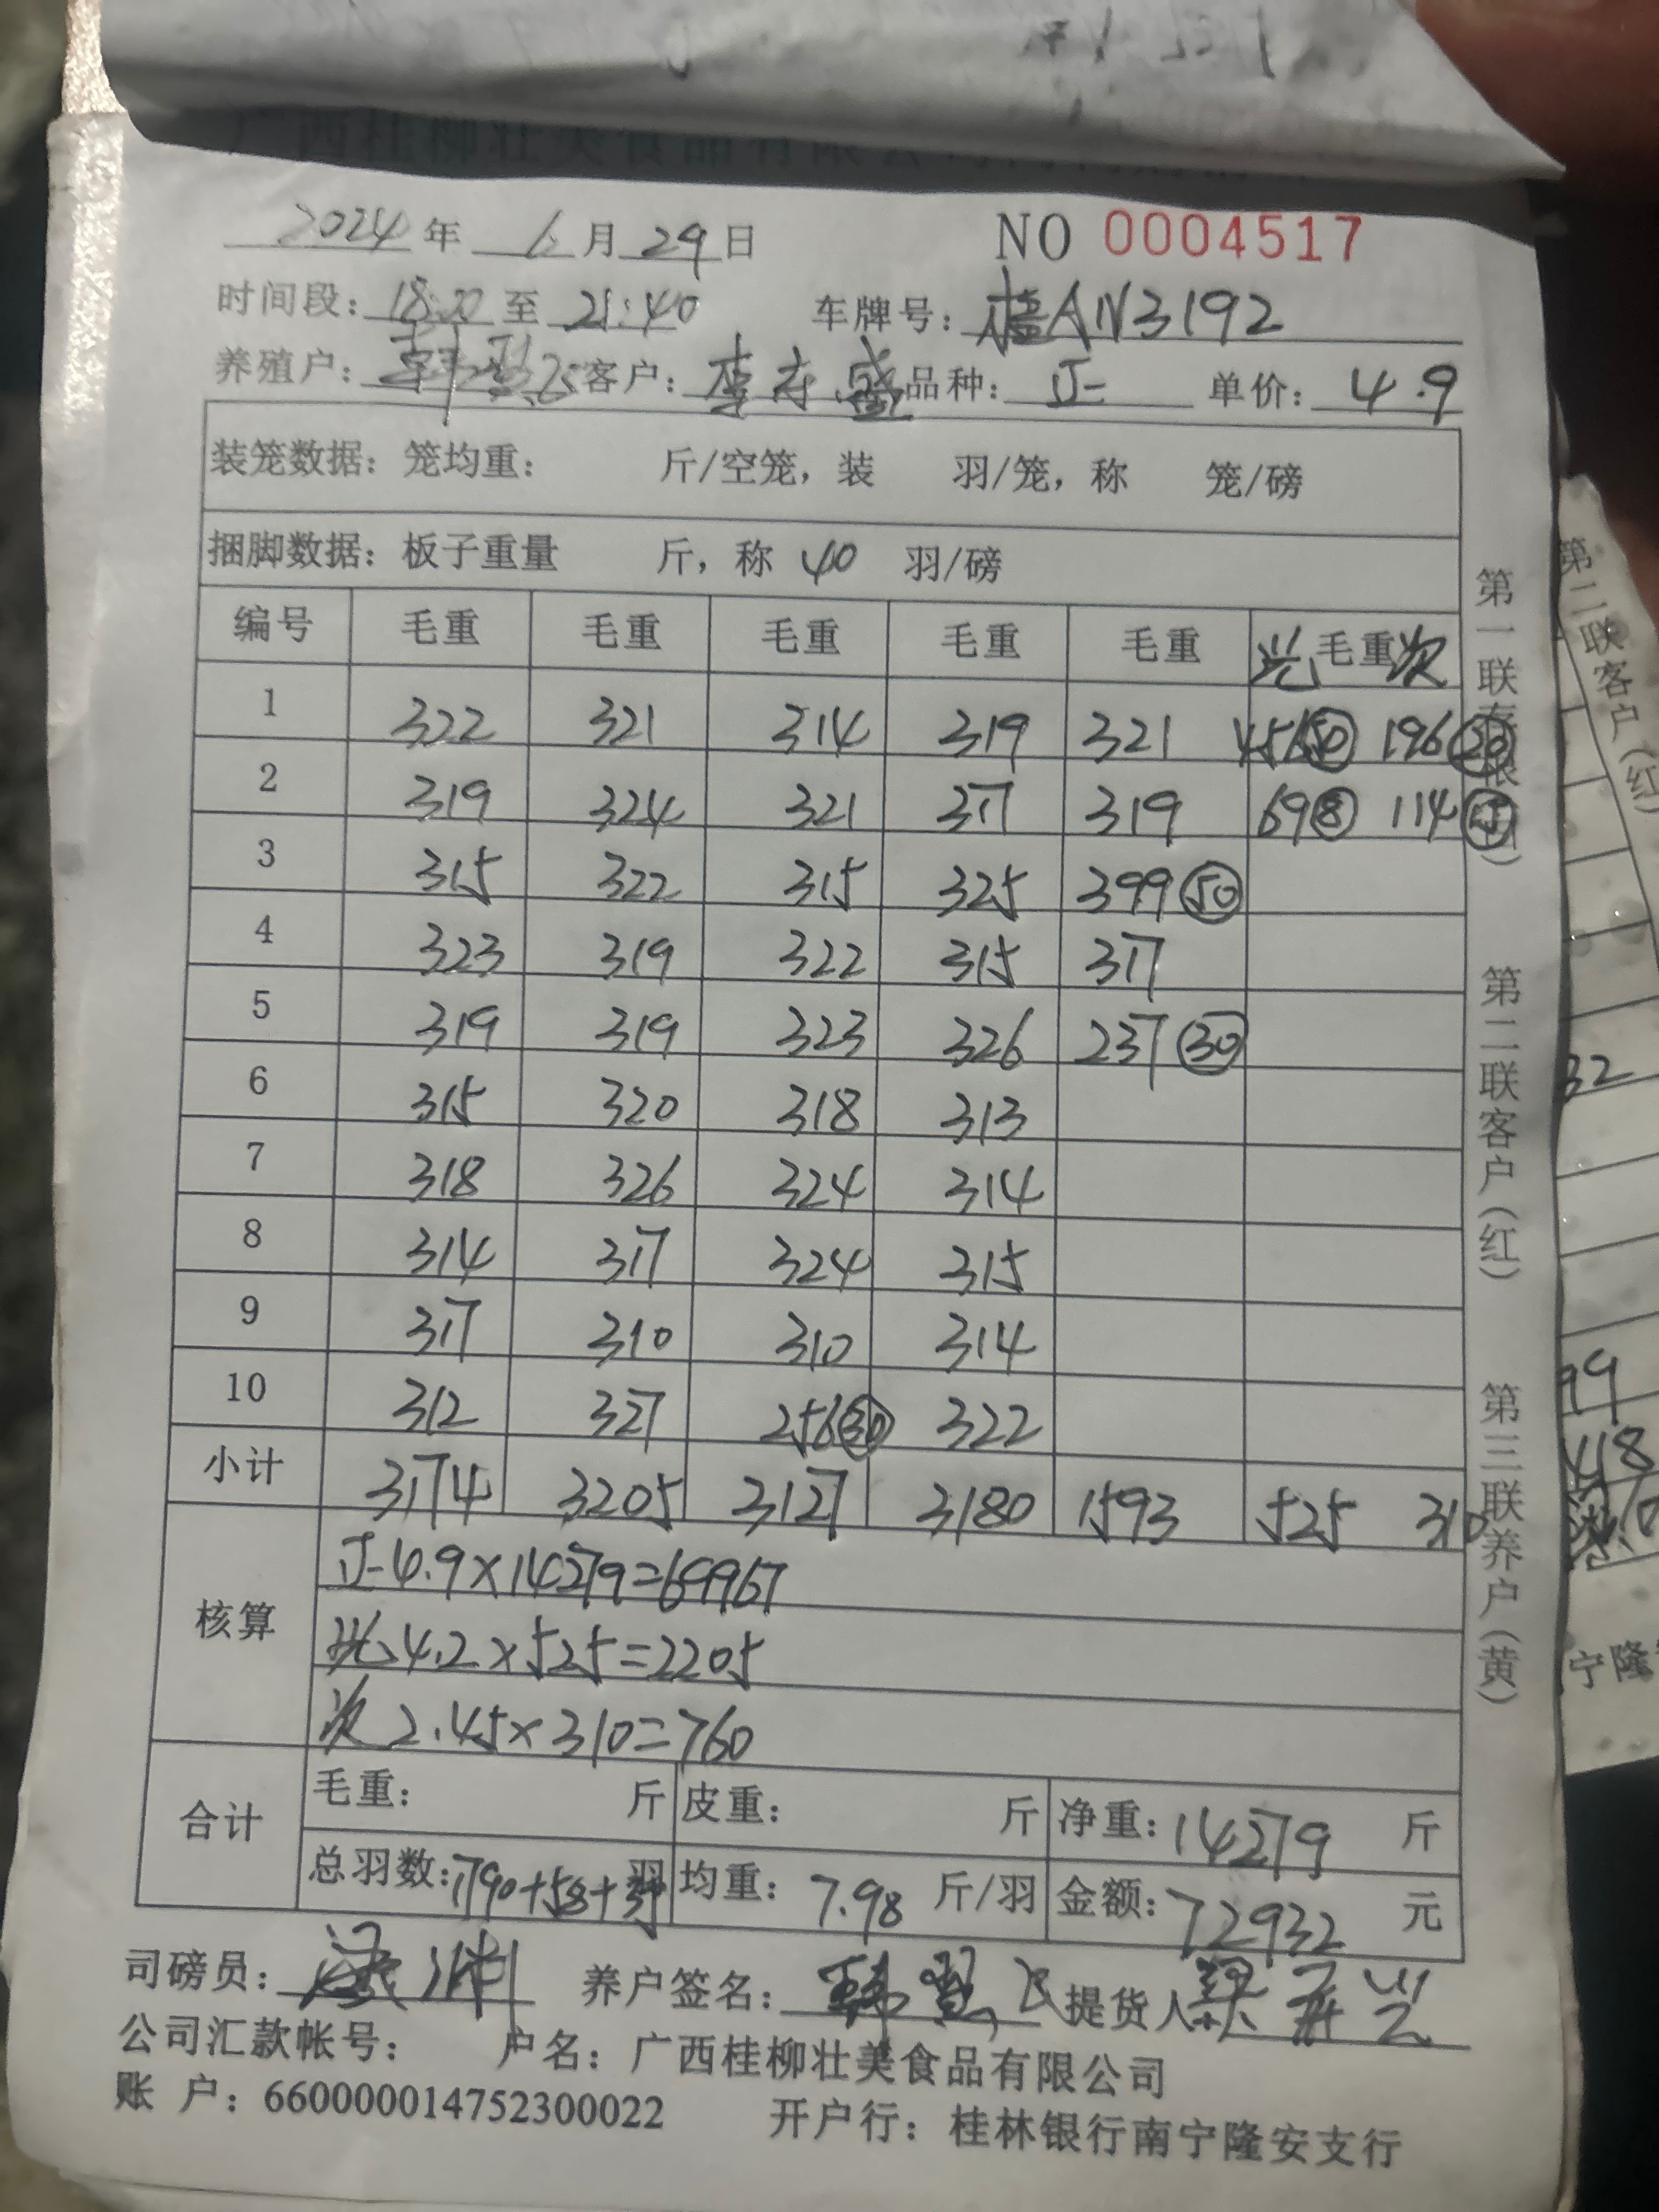 2024年 6月29日 NO 0004517
时间段：18:20至 21:40 车牌号：桂AN3192
养殖户： 客户：李寿盛 品种：正 单价：4.9
装笼数据：笼均重： 斤/空笼，装 羽/笼，称 笼/磅
捆脚数据：板子重量 斤，称 40 羽/磅
编号 毛重 毛重 毛重 毛重 毛重 光 毛重 次
1 322 321 314 319 321 456 50 196 20
2 319 324 321 317 319 69 8 114 15
3 315 322 315 325 399 50
4 323 319 322 315 317
5 319 319 323 326 237 30
6 315 320 318 313
7 318 326 324 314
8 314 317 324 315
9 317 310 310 314
10 312 327 256 30 322
小计 3174 3205 3127 3180 1593 525 310
核算 正 4.9×14279=69967
光 4.2×525=2205
次 2.45×310=760
合计 毛重： 斤 皮重： 斤 净重：14279 斤
总羽数：1790+58+35 羽 均重：7.98 斤/羽 金额：72932 元
司磅员： 养户签名： 提货人
公司汇款帐号： 户名：广西桂柳壮美食品有限公司
账 户：660000014752300022 开户行：桂林银行南宁隆安支行
第一联存根
第二联客户（红）
第三联养户（黄）
第二联客户（红）
32
99
418
宁隆